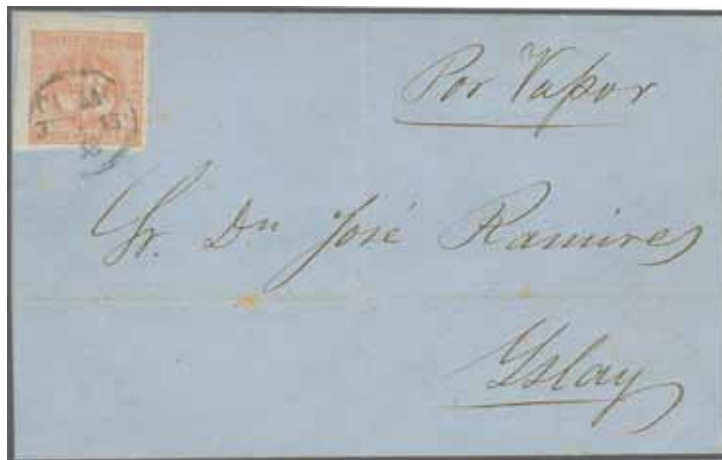 Por Vapor
Sr. Dn José Ramires
Yslay